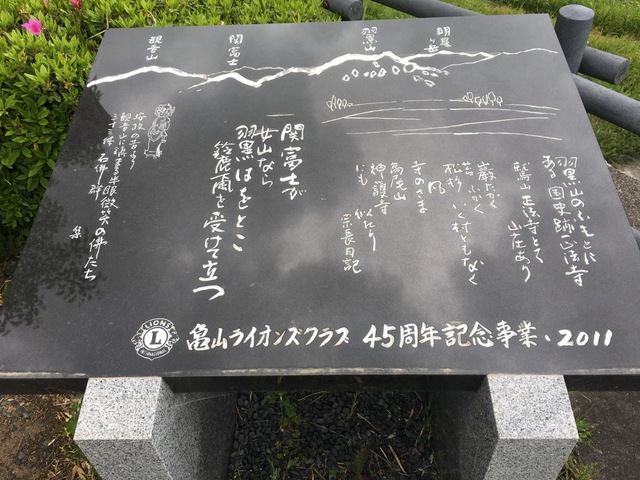 観音山
関富士
羽黒山
明星ヶ岳
羽黒山のふもとに
ある国史跡正法寺
鷲山 正法寺とて
山在あり
巌たかく
苔ふかく
松杉の風
いく村ともなく
寺のさま
高尾山
神護寺
にも似たり
宗長日記
関富士が
女山なら
羽黒はをとこ
鈴鹿颪を受けて立つ
安政の昔より
観音山に鎮まる眼微笑の佛たち
三十三体 石佛群
集
LIONS
L
INTERNATIONAL
亀山ライオンズクラブ 45周年記念事業・2011